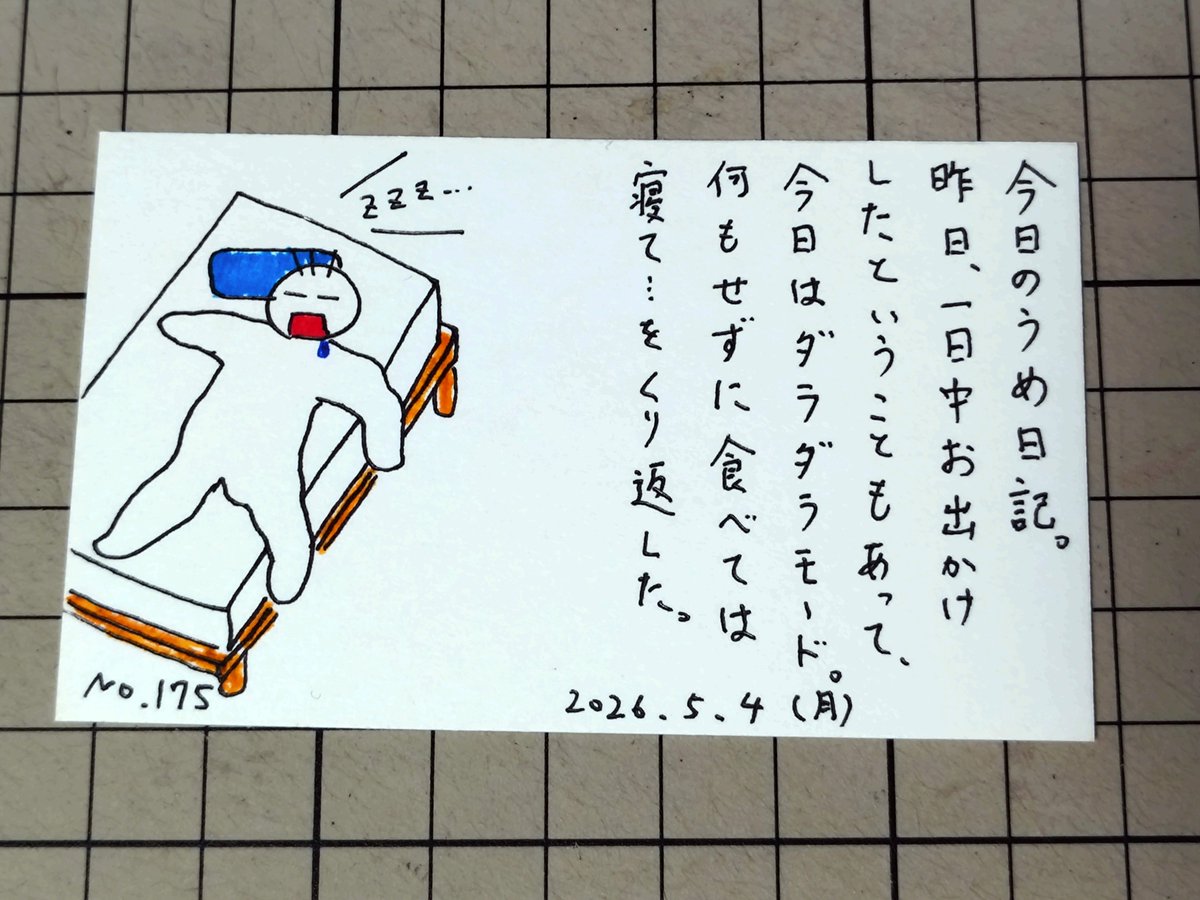 今日のうめ日記。
昨日、一日中お出かけ
したということもあって、
今日はダラダラモード。
何もせずに食べては
寝て…をくり返した。
zzz…
No.175
2026.5.4(月)